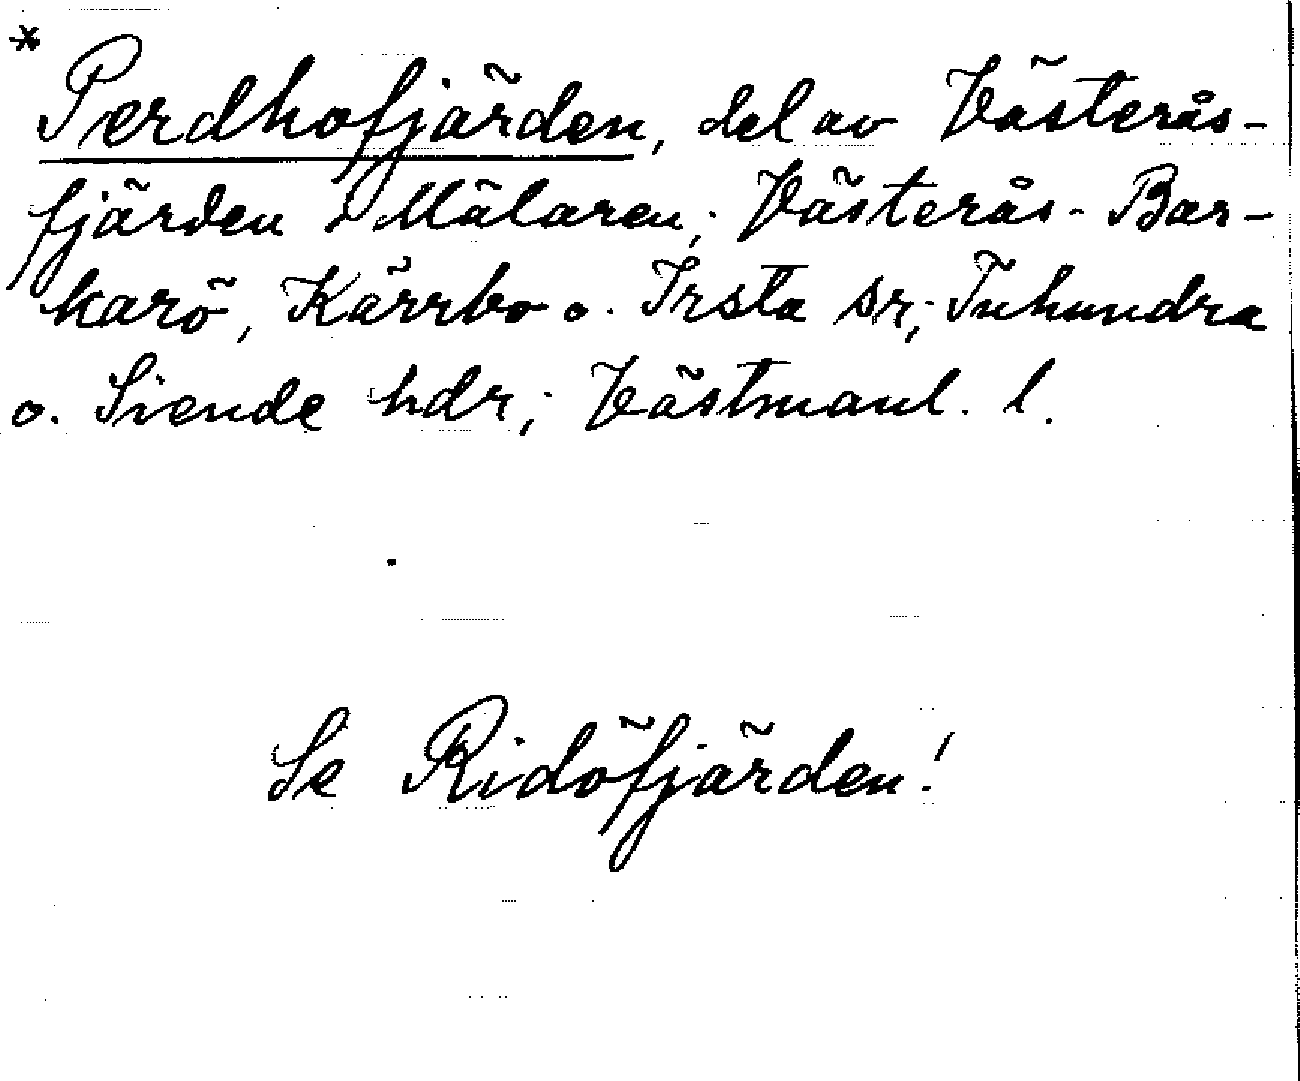 *
Perdhofjärden, del av Västerås-
fjärden i Mälaren; Västerås-Bar-
karö, Kärrbo o. Irsta sr; Tuhundra
o. Siende hdr; Västmanl. l.
Se Ridöfjärden!